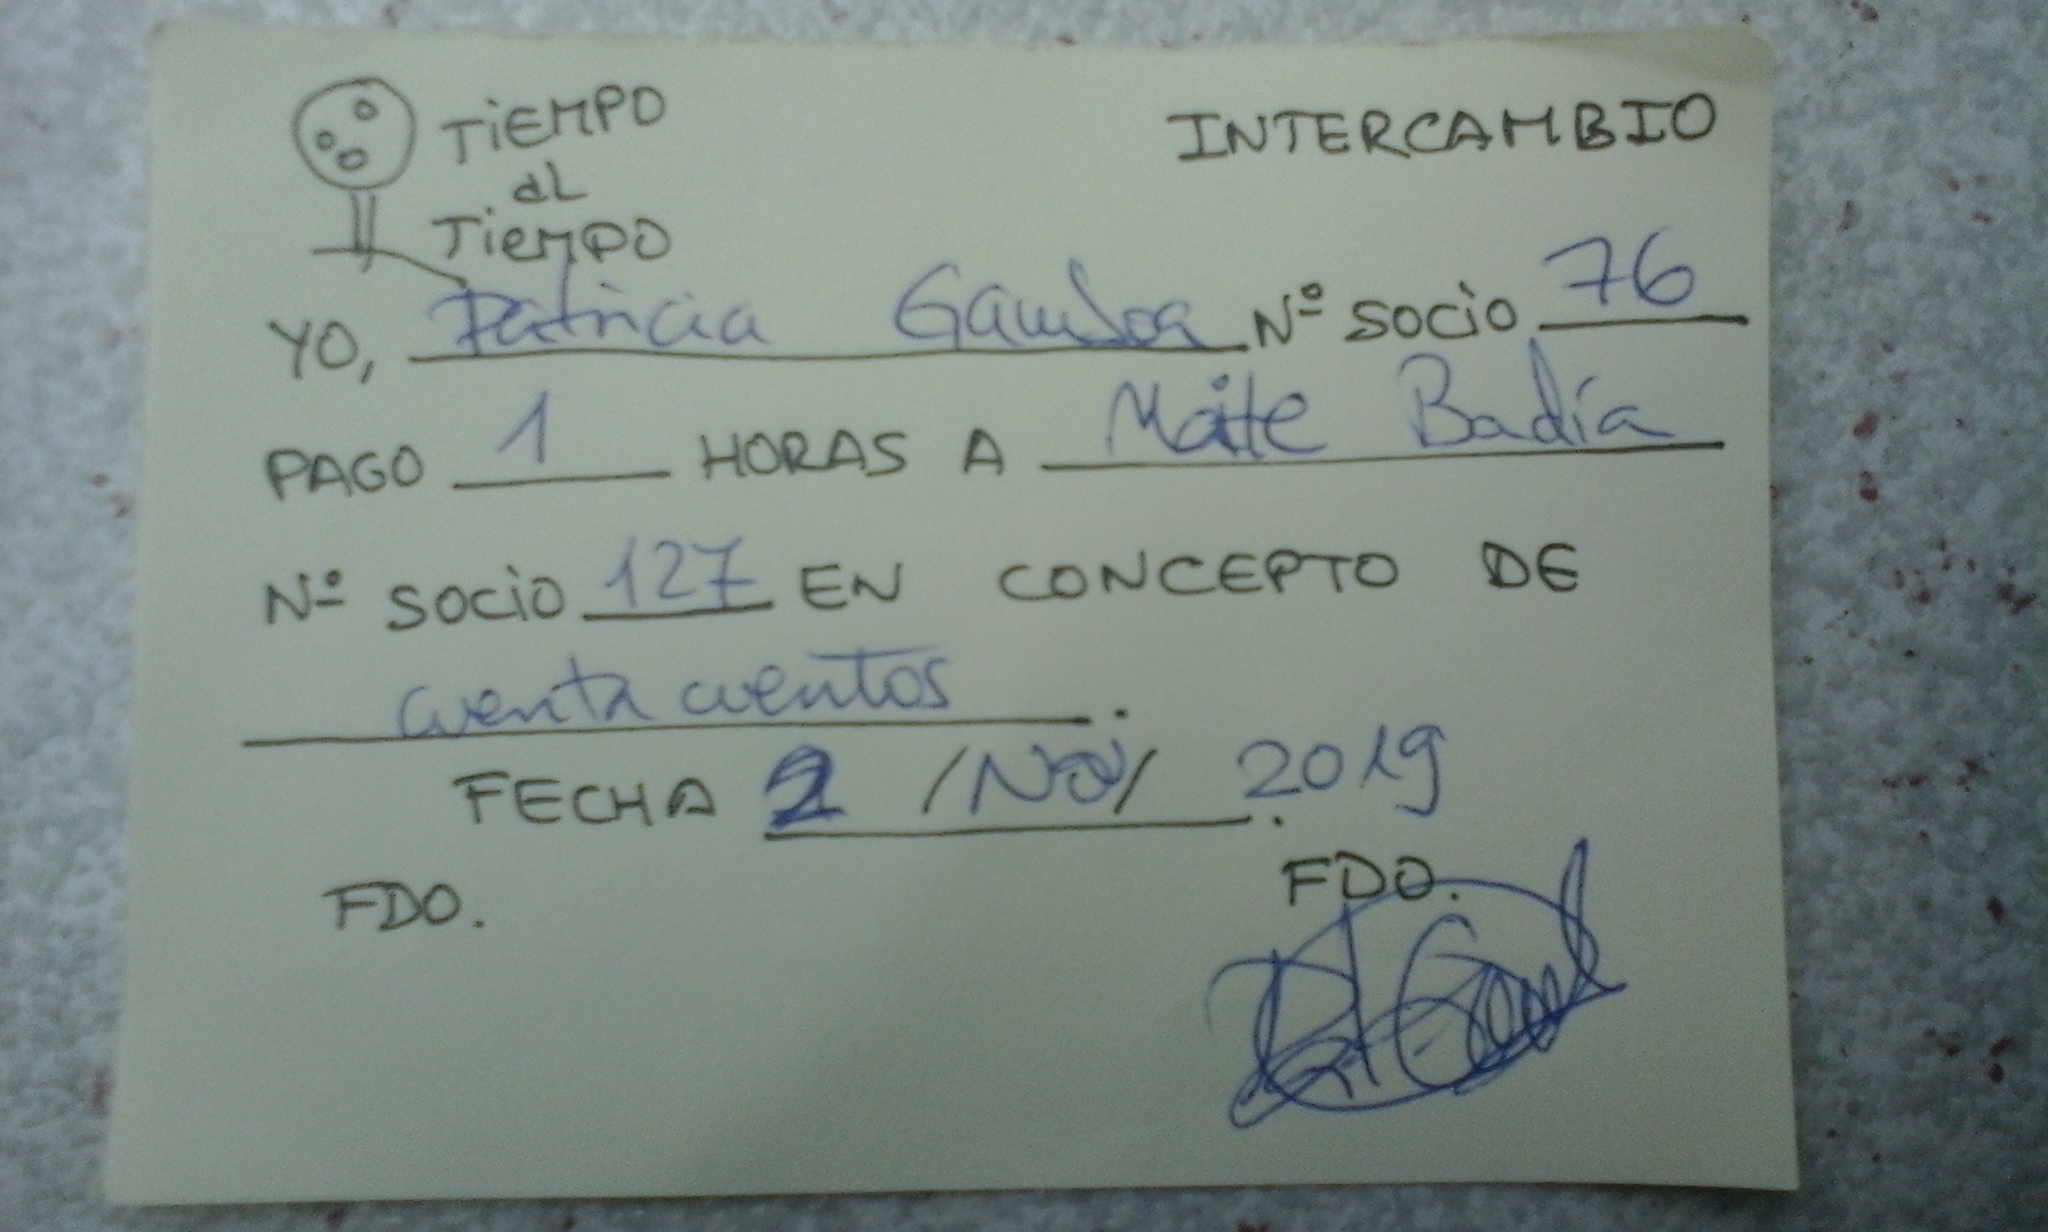 TiEMPO
al
TiEMPO
INTERCAMBIO
YO, Patricia Gamboa Nº SOCiO 76
PAGO 1 HORAS A Maite Badía
Nº SOCiO 127 EN CONCEPTO DE
cuenta cuentos.
FECHA 2 /NOV/ 2019.
FDO. FDO.